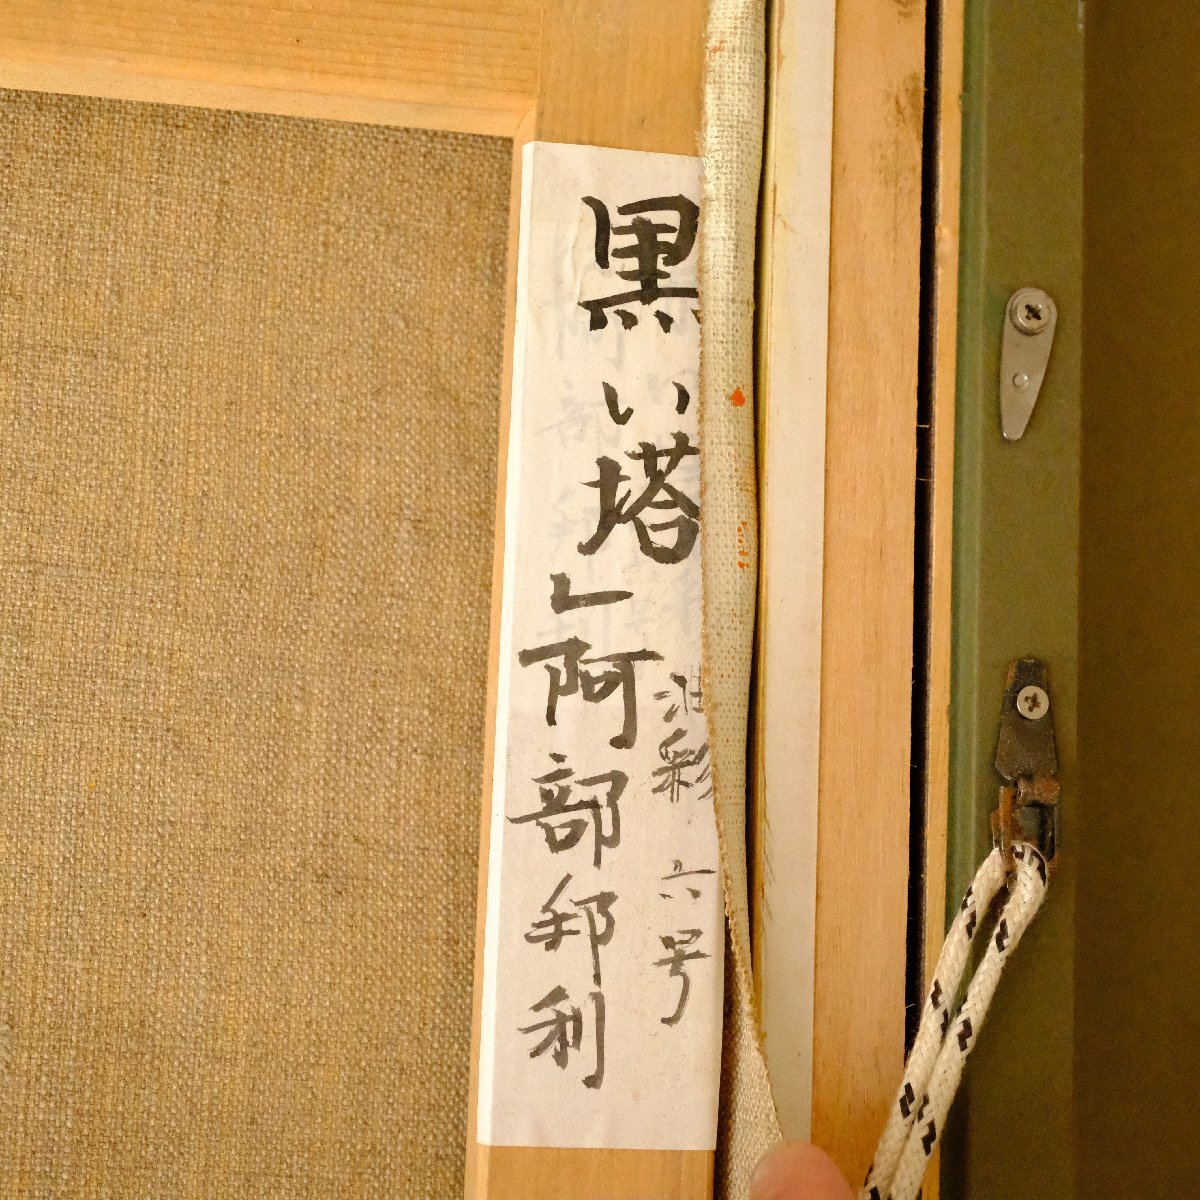 黒い塔」
油彩 六号
阿部邦利